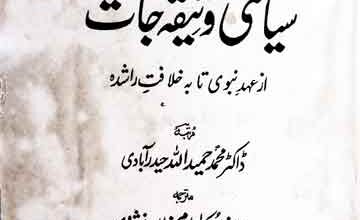 سیاسی وثیقہ جات
از عہدِ نبوی تا بہ خلافتِ راشدہ
مرتبہ
ڈاکٹر محمد حمید اللہ حیدرآبادی
مترجمہ